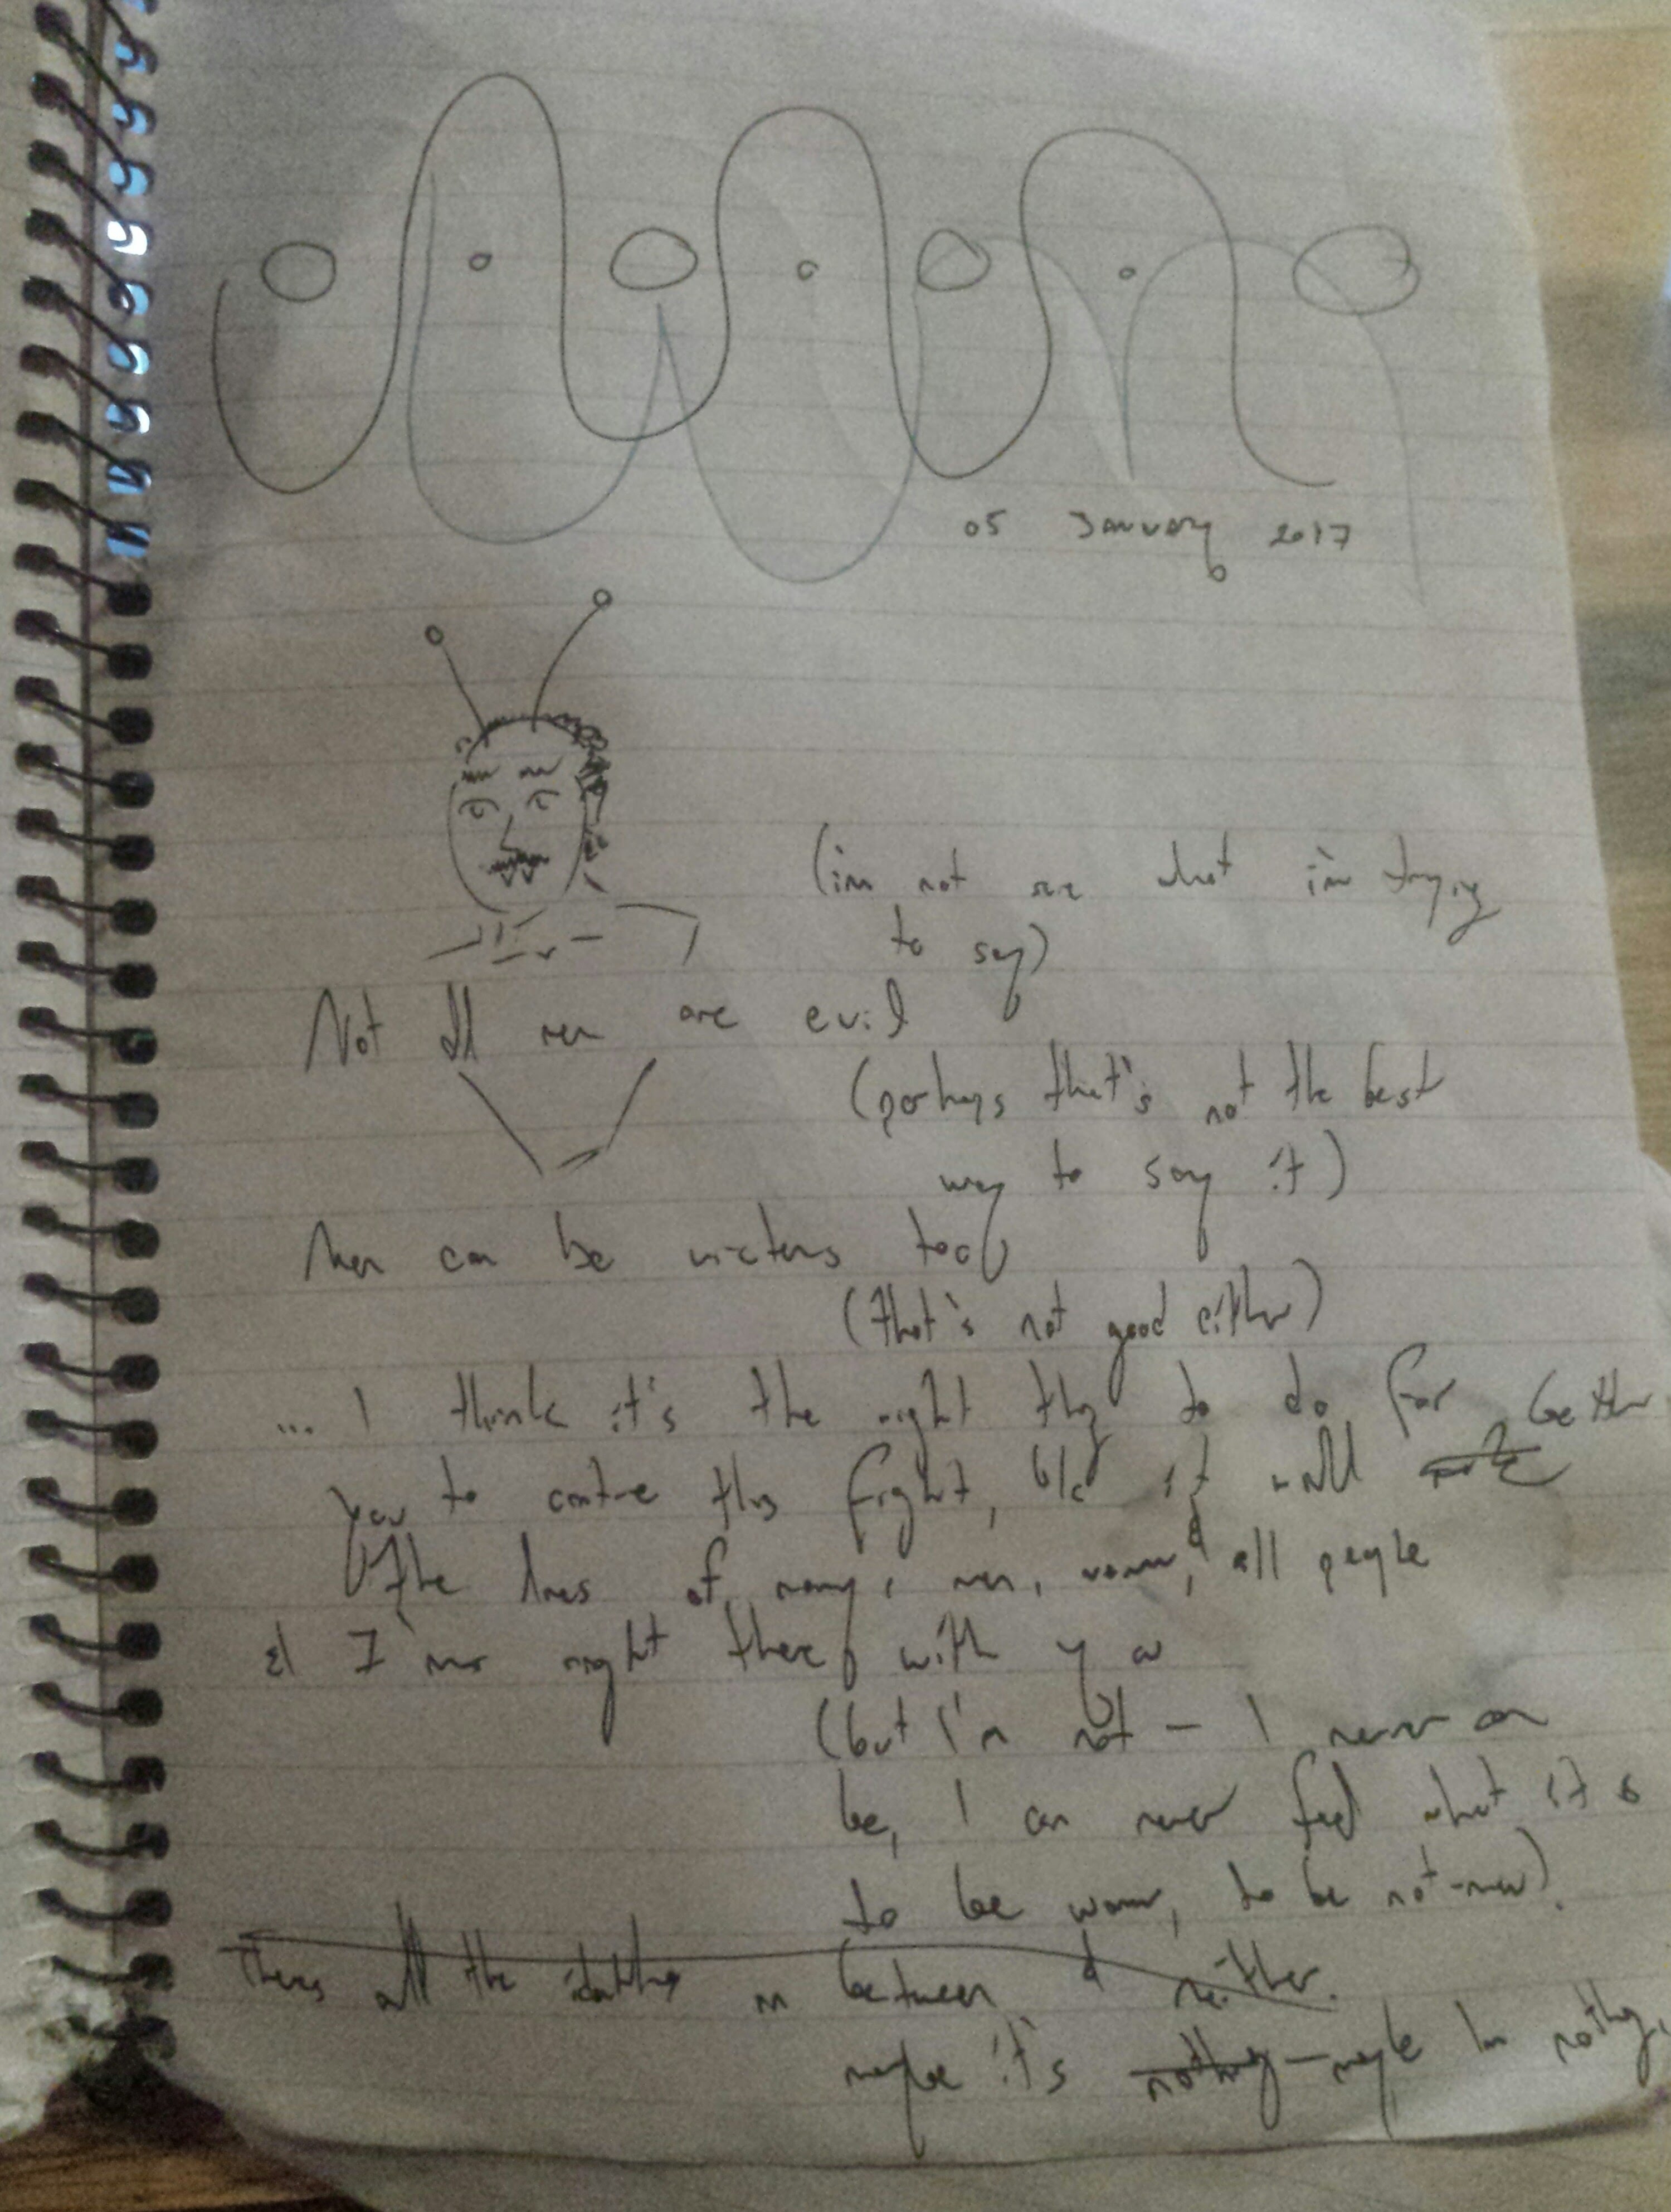 05 January 2017
(im not sure what i'm trying
to say)
Not all men are evil
(perhaps that's not the best
way to say it)
Men can be victims too
(that's not good either)
... I think it's the right thing to do for better
you to continue this fight, b/c it will
the lives of many, men, women, & all people
& I'm right there with you
(but I'm not – I never can
be, I can never feel what it is
to be woman, to be not-man).
theres all the identities in between & neither.
maybe it's nothing – maybe Im nothing.